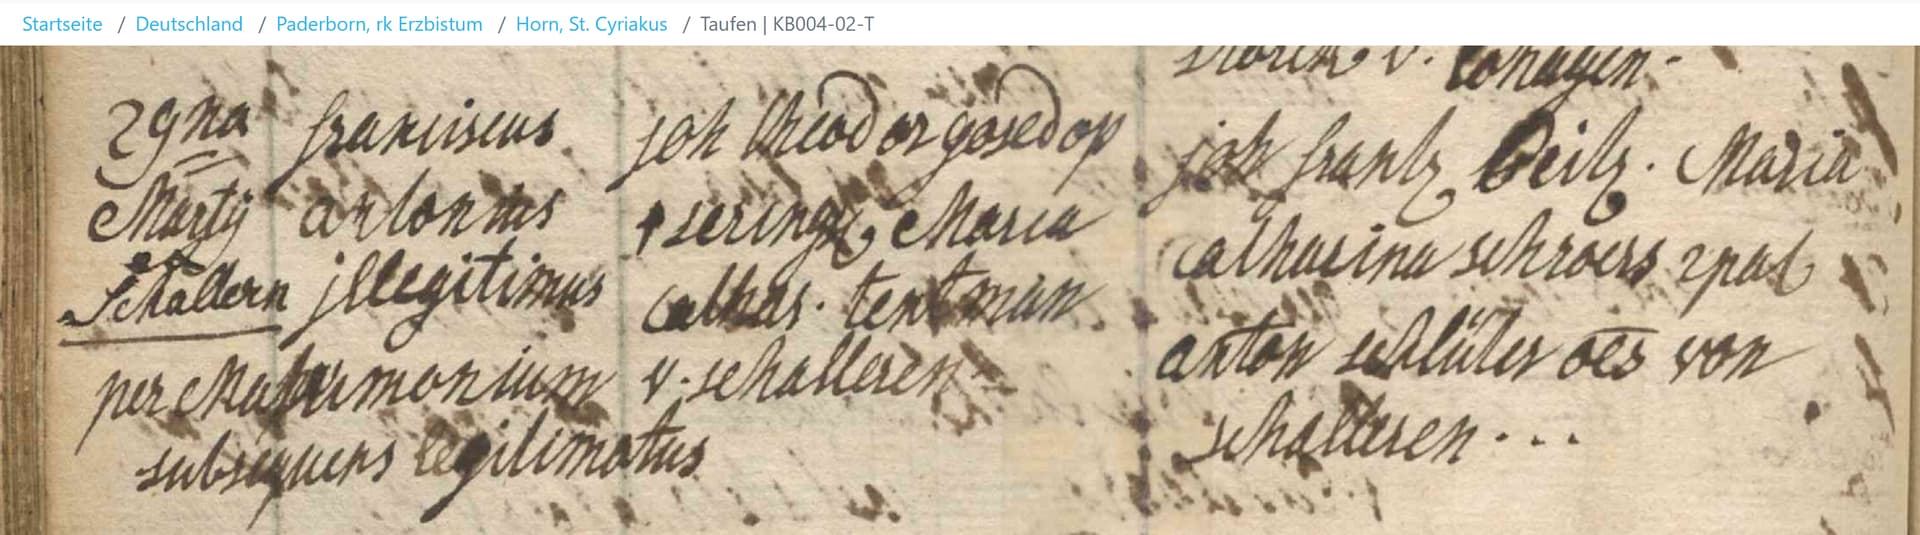 Startseite / Deutschland / Paderborn, rk Erzbistum / Horn, St. Cyriakus / Taufen | KB004-02-T
v. Lohagen.
29na franciscus joh theodor gosedop joh frantz Beitz. Maria
Martij antonius Maria catharina schroers 2 pat
Schallern jllegitimus cathar. tentman anton schlüter oes von
per Matrimonium v. schalleren schalleren...
subsequens legitimatus